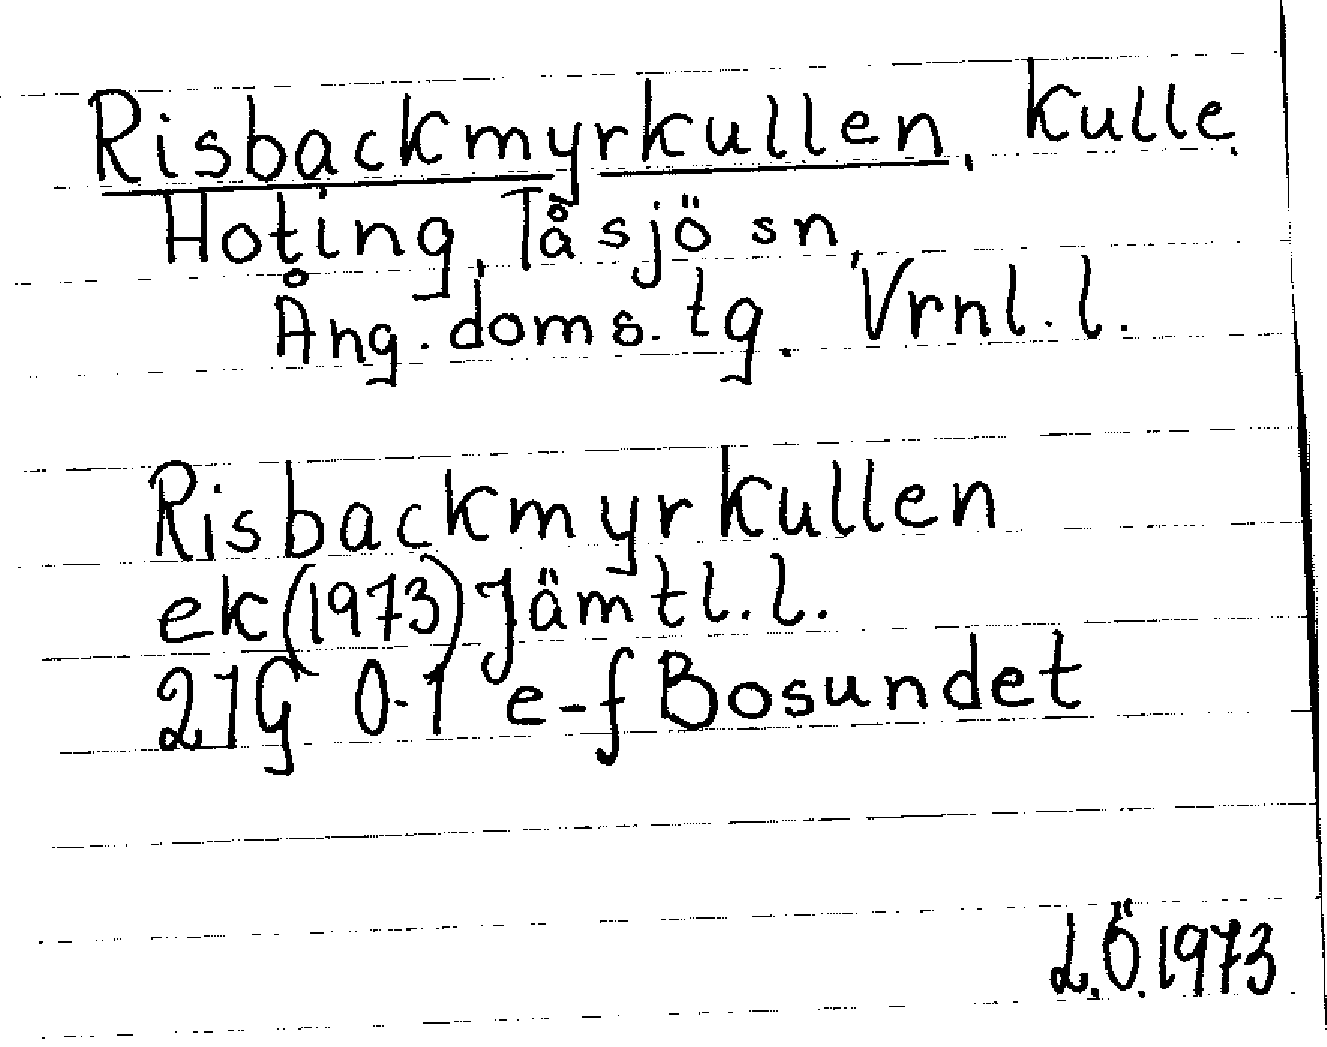 Risbackmyrkullen, kulle,
Hoting, Tåsjö sn,
Ång. doms. tg. Vrnl. l.
Risbackmyrkullen
ek (1973) Jämtl. l.
21G 0-1 e-f Bosundet
L.Ö. 1973